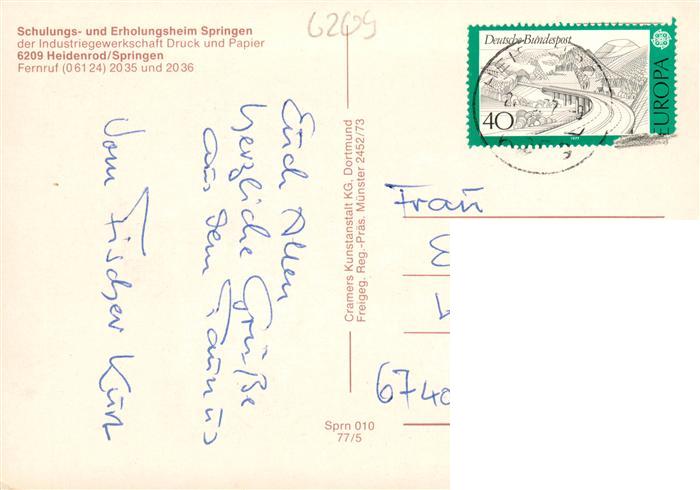 Schulungs- und Erholungsheim Springen
der Industriegewerkschaft Druck und Papier
6209 Heidenrod/Springen
Fernruf (0 61 24) 20 35 und 20 36
6209
Euch Allen
herzliche Grüße
aus dem Taunus
Vom Fischer Kurt
Cramers Kunstanstalt KG, Dortmund
Freigeg. Reg.-Präs. Münster 2452/73
Sprn 010
77/5
Deutsche Bundespost
40
EUROPA
1977
Frau
6740